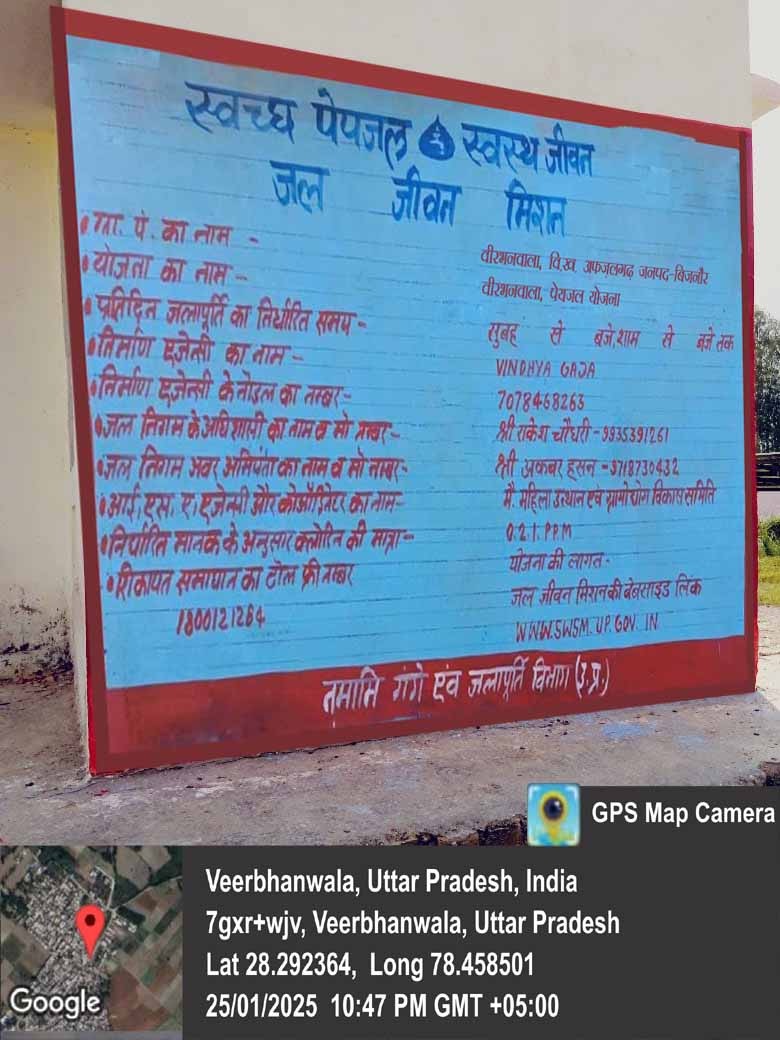 स्वच्छ पेयजल स्वस्थ जीवन
जल जीवन मिशन
ग्रा. पं. का नाम -
वीरभनवाला, वि.ख अफजलगढ़ जनपद-बिजनौर
योजना का नाम -
वीरभनवाला, पेयजल योजना
प्रतिदिन जलापूर्ति का निर्धारित समय -
सुबह से बजे, शाम से बजे तक
निर्माण एजेन्सी का नाम -
VINDHYA GAJA
निर्माण एजेन्सी के नोडल का नम्बर-
7078468263
जल निगम के अधिशासी का नाम व मो नम्बर-
श्री राकेश चौधरी - 9935391261
जल निगम अवर अभियंता का नाम व मो नम्बर-
श्री अकबर हसन - 9718730432
आई. एस. ए. एजेन्सी और कोऑर्डिनेटर का नाम-
मै. महिला उत्थान एवं ग्रामोद्योग विकास समिति
निर्धारित मानक के अनुसार क्लोरिन की मात्रा-
0.21. PPM
शिकायत समाधान का टोल फ्री नम्बर
1800121264
योजना की लागत-
जल जीवन मिशन की बेवसाइड लिंक
WWW.SWSM.UP.GOV.IN
नमामि गंगे एंव जलापूर्ति विभाग (उ.प्र.)
GPS Map Camera
Veerbhanwala, Uttar Pradesh, India
7gxr+wjv, Veerbhanwala, Uttar Pradesh
Lat 28.292364, Long 78.458501
25/01/2025 10:47 PM GMT +05:00
Google